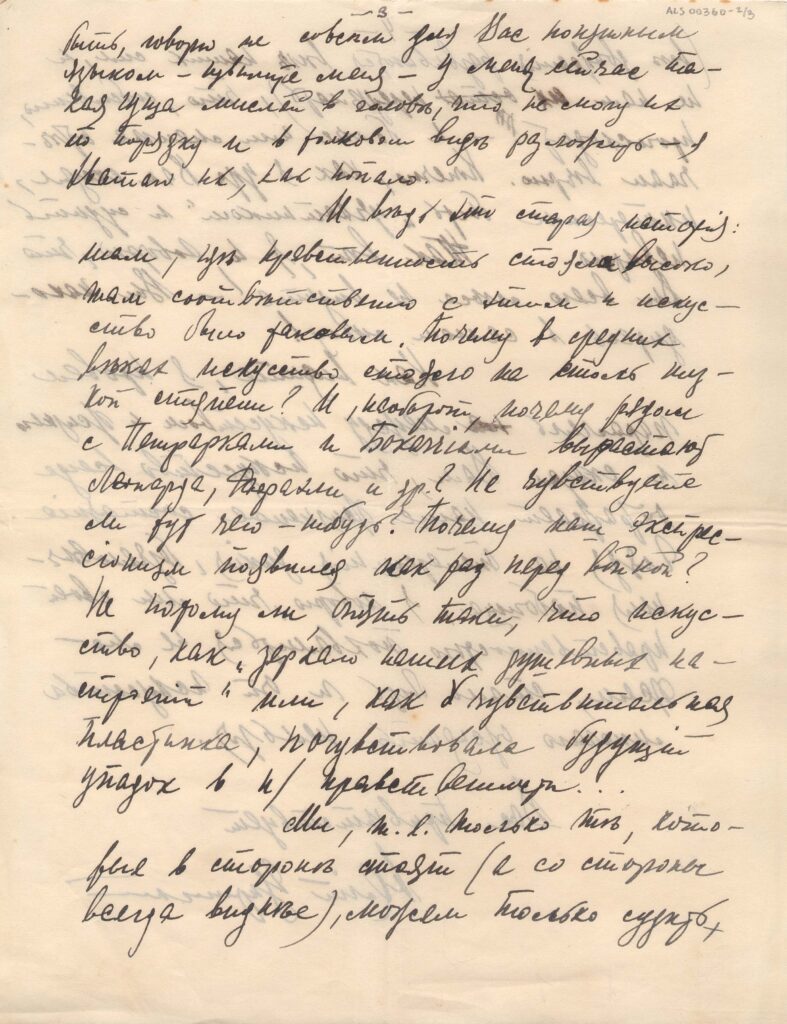 — 3 —
ALS 00360-2/3
быть, говорю не совсем для Вас понятным
языком – извините меня – у меня сейчас та-
кая гуща мыслей в головѣ, что не могу их
по порядку и в толковом видѣ разложить – я
хватаю их, как попало.
И вѣдь это старая исторія:
там, гдѣ нравственность стояла высоко,
там соотвѣтственно с этим и искус-
ство было таковым. Почему в средних
вѣках искусство стояло на столь низ-
кой ступени? И, наоборот, почему рядом
с Петрарками и Бокаччіами вырастают
Леонарда, Рафаэли и др.? Не чувствуете
ли тут чего-нибудь? Почему наш экспрес-
сіонизм появился как раз перед войной?
Не потому ли, опять таки, что искус-
ство, как „зеркало наших душевных на-
строеній" или, как чувствительная
пластинка, почувствовала будущій
упадок в н/ нравственности...
Мы, т. е. только тѣ, кото-
рые в сторонѣ стоят (а со стороны
всегда виднѣе), можем только судить,